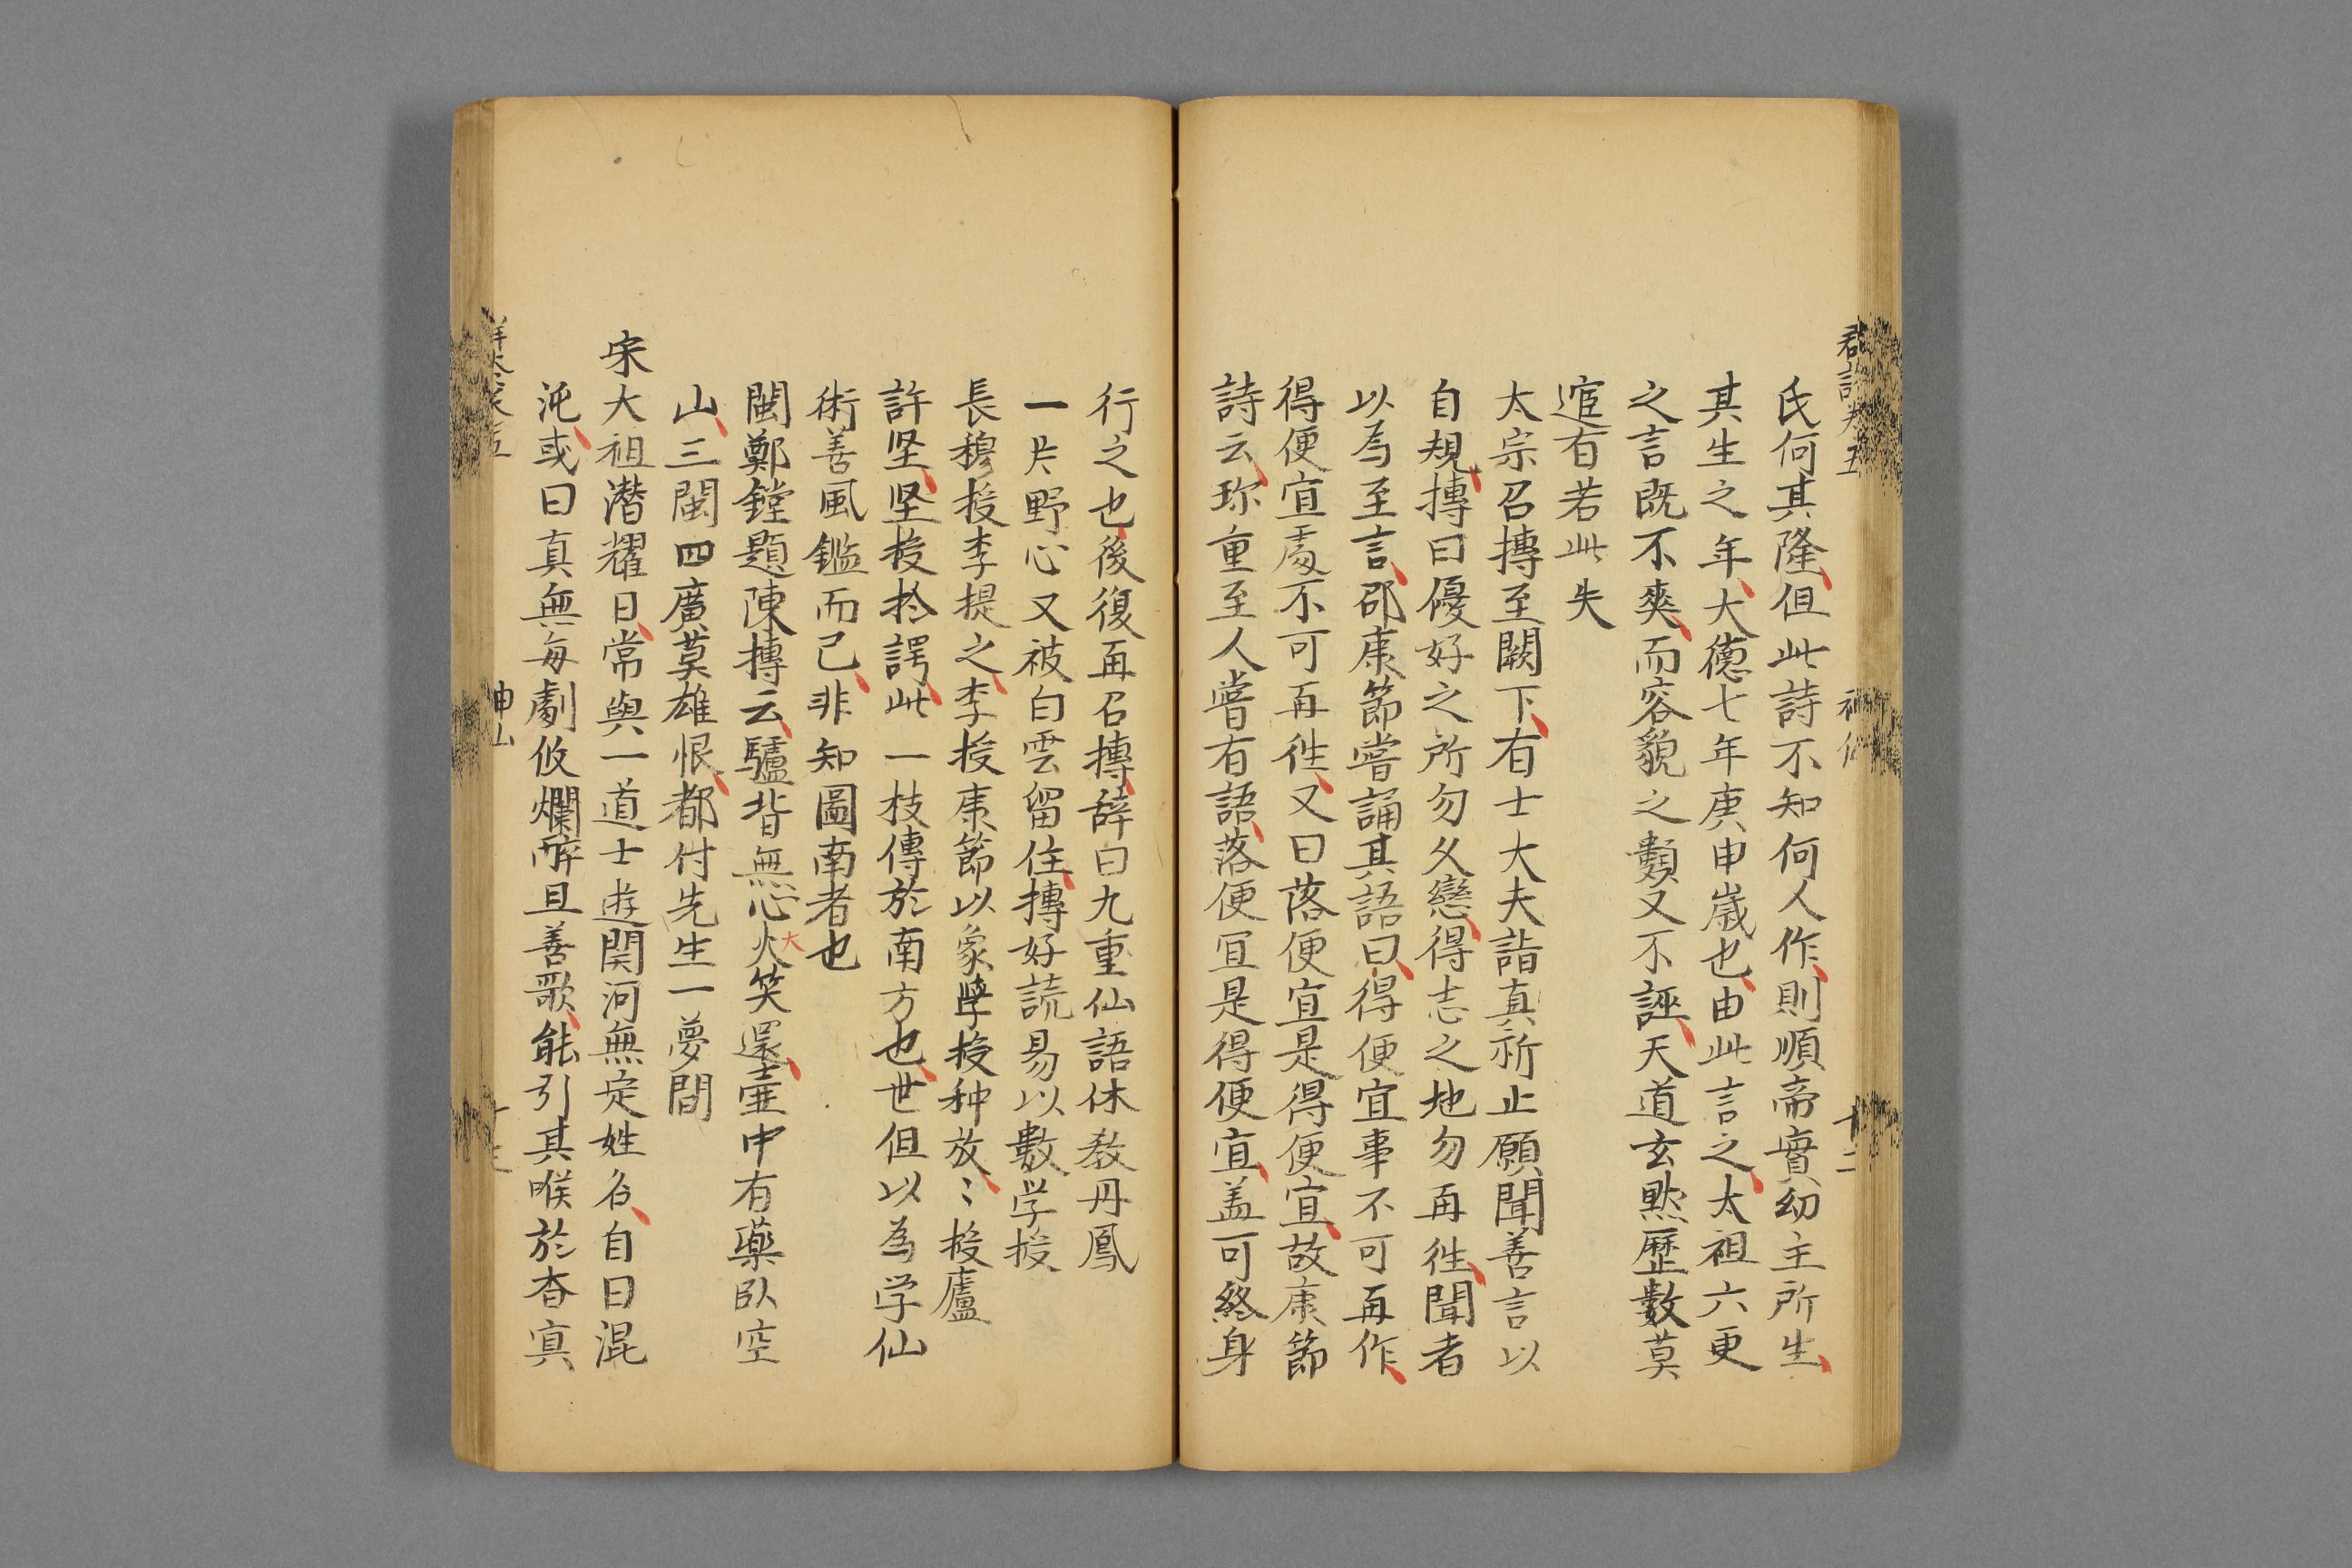 氏何其隆但此詩不知何人作則順帝實幼主所生
其生之年大德七年庚申歲也由此言之太祖六更
之言既不爽而容貌之類又不誣天道玄黙歷數莫
逭有若此失
太宗召摶至闕下有士大夫詣真祈止願聞善言以
自規摶曰優好之所勿久戀得志之地勿再徃聞者
以為至言邵康節嘗誦其語曰得便宜事不可再作
得便宜處不可再徃又曰落便宜是得便宜故康節
詩云珎重至人嘗有語落便冝是得便宜盖可終身
行之也後復再召摶辞曰九重仙語休教丹鳳
一片野心又被白雲留住摶好読易以數学授
長穆授李提之李授康節以象學授种放〻授廬
許坚坚授扵諤此一枝傳於南方也世但以為学仙
術善風鑑而已非知圖南者也
閩鄭鏜題陳摶云驢背無心火笑還壷中有藥臥空
大
山三閩四廣莫雄恨都付先生一夢間
宋大祖潜耀日常與一道士遊関河無定姓名自曰混
沌或曰真無每劇攸爛醉且善歌能引其喉於杳寞
十二